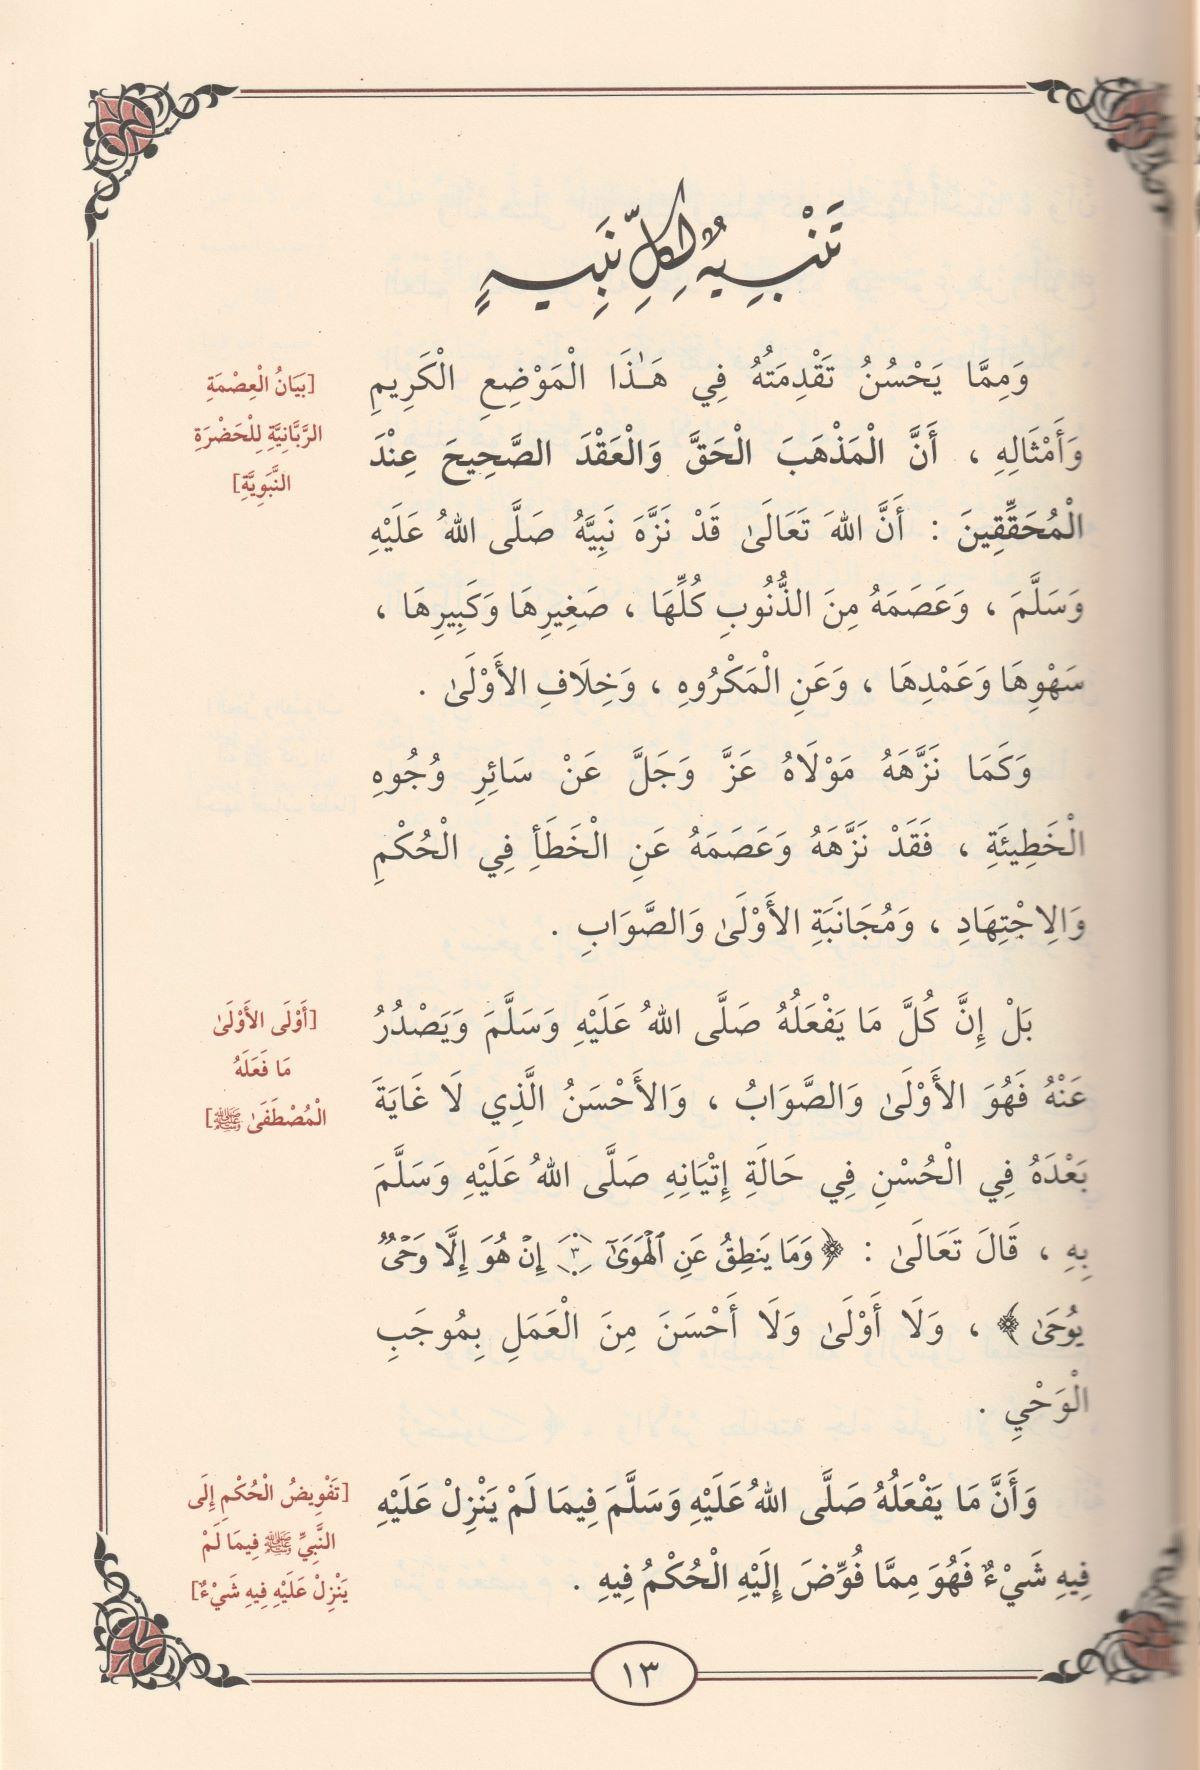 تَنْبِيهٌ لِكُلِّ نَبِيهٍ
وَمِمَّا يَحْسُنُ تَقْدِمَتُهُ فِي هَـٰذَا الْمَوْضِعِ الْكَرِيمِ
وَأَمْثَالِهِ ، أَنَّ الْمَذْهَبَ الْحَقَّ وَالْعَقْدَ الصَّحِيحَ عِنْدَ
الْمُحَقِّقِينَ : أَنَّ اللهَ تَعَالَىٰ قَدْ نَزَّهَ نَبِيَّهُ صَلَّى اللهُ عَلَيْهِ
وَسَلَّمَ ، وَعَصَمَهُ مِنَ الذُّنُوبِ كُلِّهَا ، صَغِيرِهَا وَكَبِيرِهَا ،
سَهْوِهَا وَعَمْدِهَا ، وَعَنِ الْمَكْرُوهِ ، وَخِلَافِ الأَوْلَىٰ .
[بَيَانُ الْعِصْمَةِ
الرَّبَّانِيَّةِ لِلْحَضْرَةِ
النَّبَوِيَّةِ]
وَكَمَا نَزَّهَهُ مَوْلَاهُ عَزَّ وَجَلَّ عَنْ سَائِرِ وُجُوهِ
الْخَطِيئَةِ ، فَقَدْ نَزَّهَهُ وَعَصَمَهُ عَنِ الْخَطَأِ فِي الْحُكْمِ
وَالِاجْتِهَادِ ، وَمُجَانَبَةِ الأَوْلَىٰ وَالصَّوَابِ .
بَلْ إِنَّ كُلَّ مَا يَفْعَلُهُ صَلَّى اللهُ عَلَيْهِ وَسَلَّمَ وَيَصْدُرُ
عَنْهُ فَهُوَ الأَوْلَىٰ وَالصَّوَابُ ، وَالأَحْسَنُ الَّذِي لَا غَايَةَ
بَعْدَهُ فِي الْحُسْنِ فِي حَالَةِ إِتْيَانِهِ صَلَّى اللهُ عَلَيْهِ وَسَلَّمَ
بِهِ ، قَالَ تَعَالَىٰ : ﴿ وَمَا يَنطِقُ عَنِ ٱلْهَوَىٰٓ ۝٣ إِنْ هُوَ إِلَّا وَحْىٌ
يُوحَىٰ ﴾ ، وَلَا أَوْلَىٰ وَلَا أَحْسَنَ مِنَ الْعَمَلِ بِمُوجَبِ
الْوَحْيِ .
[أَوْلَى الأَوْلَىٰ
مَا فَعَلَهُ
الْمُصْطَفَىٰ ﷺ]
وَأَنَّ مَا يَفْعَلُهُ صَلَّى اللهُ عَلَيْهِ وَسَلَّمَ فِيمَا لَمْ يَنْزِلْ عَلَيْهِ
فِيهِ شَيْءٌ فَهُوَ مِمَّا فُوِّضَ إِلَيْهِ الْحُكْمُ فِيهِ .
[تَفْوِيضُ الْحُكْمِ إِلَى
النَّبِيِّ ﷺ فِيمَا لَمْ
يَنْزِلْ عَلَيْهِ فِيهِ شَيْءٌ]
١٣